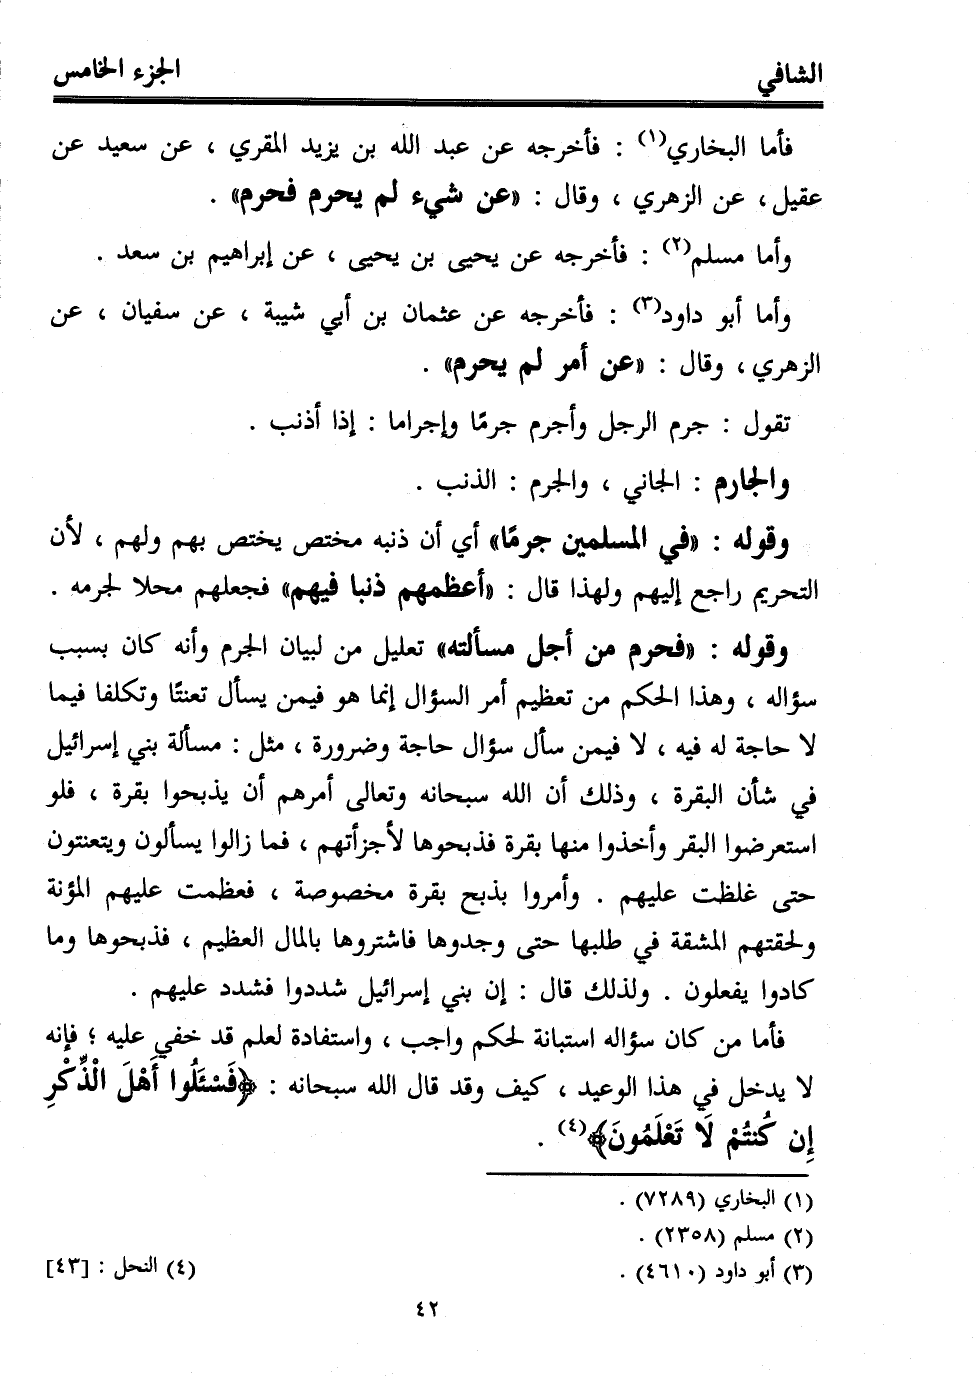 الشافي
الجزء الخامس
فأما البخاري(١) : فأخرجه عن عبد الله بن يزيد المقري ، عن سعيد عن
عقيل، عن الزهري ، وقال : «عن شيء لم يحرم فحرم» .
وأما مسلم(٢) : فأخرجه عن يحيى بن يحيى ، عن إبراهيم بن سعد .
وأما أبو داود(٣) : فأخرجه عن عثمان بن أبي شيبة ، عن سفيان ، عن
الزهري، وقال : «عن أمر لم يحرم» .
تقول : جرم الرجل وأجرم جرمًا وإجراما : إذا أذنب .
والجارم : الجاني ، والجرم : الذنب .
وقوله : «في المسلمين جرمًا» أي أن ذنبه مختص يختص بهم ولهم ، لأن
التحريم راجع إليهم ولهذا قال : «أعظمهم ذنبا فيهم» فجعلهم محلا لجرمه .
وقوله : «فحرم من أجل مسألته» تعليل من لبيان الجرم وأنه كان بسبب
سؤاله ، وهذا الحكم من تعظيم أمر السؤال إنما هو فيمن يسأل تعنتًا وتكلفا فيما
لا حاجة له فيه ، لا فيمن سأل سؤال حاجة وضرورة ، مثل : مسألة بني إسرائيل
في شأن البقرة ، وذلك أن الله سبحانه وتعالى أمرهم أن يذبحوا بقرة ، فلو
استعرضوا البقر وأخذوا منها بقرة فذبحوها لأجزأتهم ، فما زالوا يسألون ويتعنتون
حتى غلظت عليهم . وأمروا بذبح بقرة مخصوصة ، فعظمت عليهم المؤنة
ولحقتهم المشقة في طلبها حتى وجدوها فاشتروها بالمال العظيم ، فذبحوها وما
كادوا يفعلون . ولذلك قال : إن بني إسرائيل شددوا فشدد عليهم .
فأما من كان سؤاله استبانة لحكم واجب ، واستفادة لعلم قد خفي عليه ؛ فإنه
لا يدخل في هذا الوعيد ، كيف وقد قال الله سبحانه : ﴿فَسْئَلُوا أَهْلَ الْذِّكْرِ
إِن كُنتُمْ لَا تَعْلَمُونَ﴾(٤) .
(١) البخاري (٧٢٨٩) .
(٢) مسلم (٢٣٥٨) .
(٣) أبو داود (٤٦١٠) .
(٤) النحل : [٤٣]
٤٢